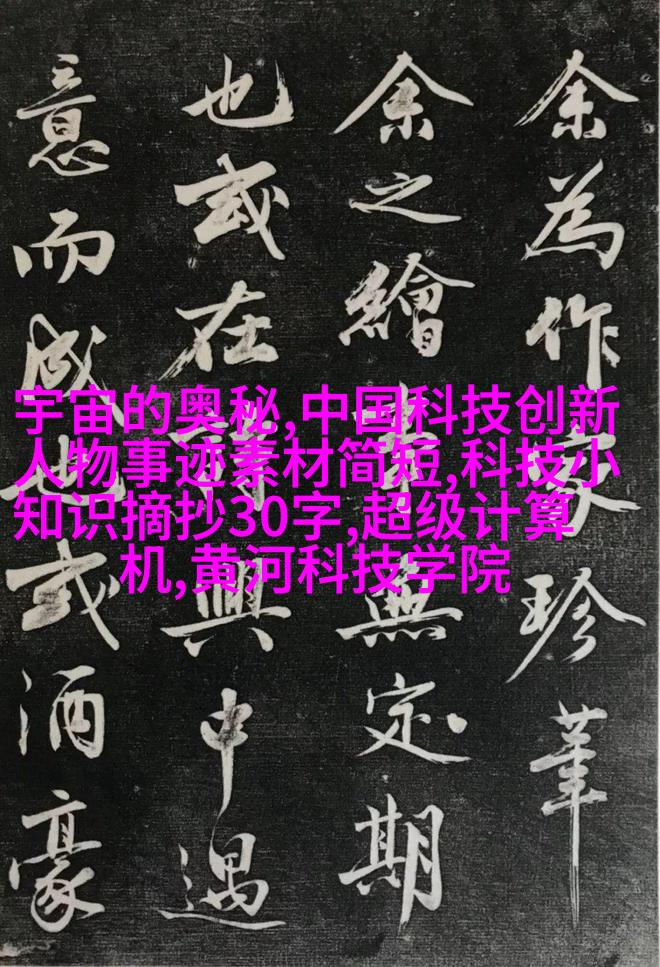 余為作家珍
余之繪無定期
也或在興中遇
意而成也或酒豪
宇宙的奥秘,中国科技创新
人物事迹素材简短,科技小
知识摘抄30字,超级计算
机,黄河科技学院